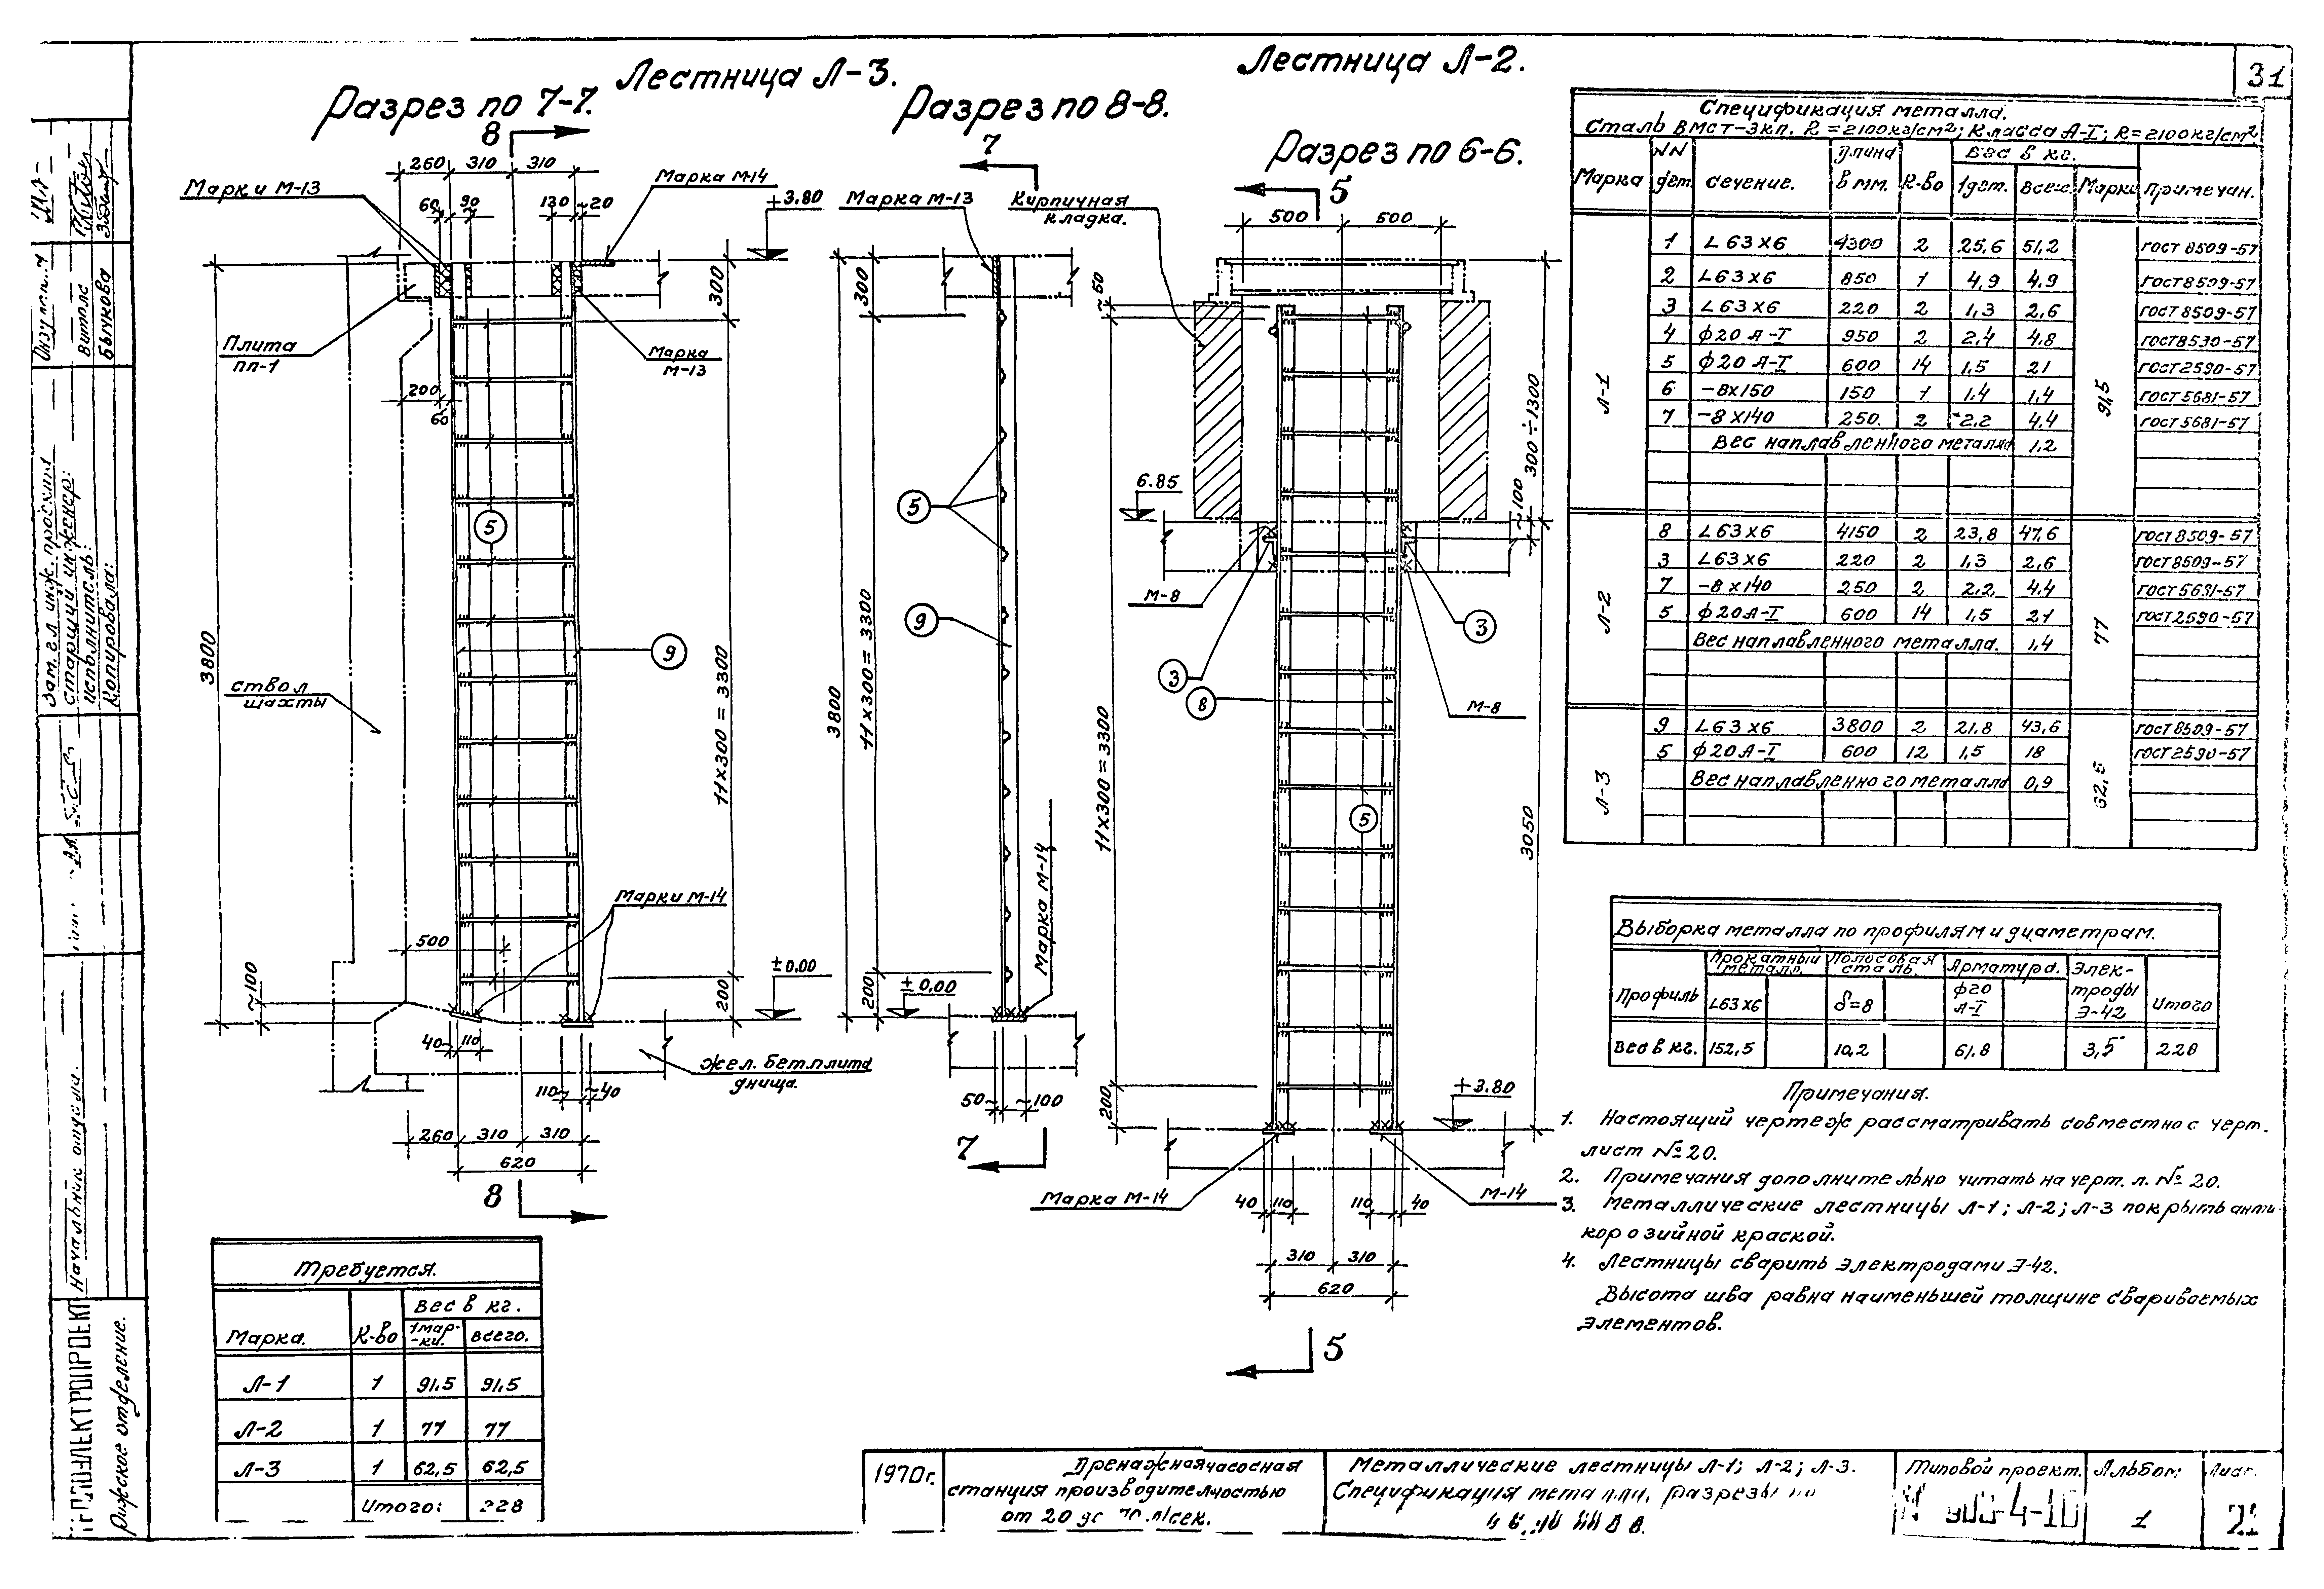 31
Лестница Л-3.
Лестница Л-2.
Разрез по 7-7.
Разрез по 8-8.
Разрез по 6-6.
8
260 310 310
Марки М-13
Марка М-14
60 90 130 ~20
±3.80
300
Плита
ПП-1
Марка
М-13
200
60
5
3800
9
11x300=3300
ствол
шахты
Марки М-14
500
~100
±0.00
200
40~ 110
110~ ~40
Жел. бет. плита
днища.
260 310 310
620
8
7
Марка М-13
300
5
9
11x300=3300
3800
Марка М-14
±0,00
200
50~ ~100
7
5
Кирпичная
кладка.
500 500
~50
300÷1300
6.85
~100
М-8
3
3
8
М-8
11x300=3300
5
3050
+3.80
200
Марка М-14
М-14
40 110 110 40
310 310
620
5
Спецификация металла.
Сталь ВМСт-3кп. R=2100кг/см²; Класса А-I; R=2100кг/см²
Марка NN дет. сечение. Длина в мм. К-во Вес в кг. 1дет. всего Марки Примечан.
Л-1 91,5
1 L 63x6 4300 2 25,6 51,2 ГОСТ 8509-57
2 L63x6 850 1 4,9 4,9 ГОСТ 8509-57
3 L63x6 220 2 1,3 2,6 ГОСТ 8509-57
4 ф20 А-I 950 2 2,4 4,8 ГОСТ 8530-57
5 ф20 А-I 600 14 1,5 21 ГОСТ 2590-57
6 -8x150 150 1 1,4 1,4 ГОСТ 5681-57
7 -8x140 250. 2 2,2 4,4 ГОСТ 5681-57
Вес наплавленного металла 1,2
Л-2 77
8 L63x6 4150 2 23,8 47,6 ГОСТ 8509-57
3 L63x6 220 2 1,3 2,6 ГОСТ 8509-57
7 -8x140 250 2 2,2 4,4 ГОСТ 5681-57
5 ф20А-I 600 14 1,5 21 ГОСТ 2590-57
Вес наплавленного металла. 1,4
Л-3 62,5
9 L63x6 3800 2 21,8 43,6 ГОСТ 8509-57
5 ф20А-I 600 12 1,5 18 ГОСТ 2590-57
Вес наплавленного металла 0,9
Выборка металла по профилям и диаметрам.
Профиль Прокатный металл. Полосовая сталь. Арматура. Электроды Э-42 Итого
L63x6 δ=8 ф20 А-I
Вес в кг. 152,5 10,2 61,8 3,5 228
Примечания.
1. Настоящий чертеж рассматривать совместно с черт.
лист №20.
2. Примечания дополнительно читать на черт. л. №20.
3. Металлические лестницы Л-1; Л-2; Л-3 покрыть анти-
корозийной краской.
4. Лестницы сварить электродами Э-42.
Высота шва равна наименьшей толщине свариваемых
элементов.
Требуется.
Марка. К-во Вес в кг.
1мар-
-ки. всего.
Л-1 1 91,5 91,5
Л-2 1 77 77
Л-3 1 62,5 62,5
Итого: 228
1970г.
Дренажная насосная
станция производительностью
от 20 до л/сек.
Металлические лестницы Л-1; Л-2; Л-3.
Спецификация металла. Разрезы по
Типовой проект.
Альбом
1
Лист.
Зам. гл. инж. проекта
старший инженер:
исполнитель:
Копировала:
Витолс
Бычкова
Начальник отдела.
Рижское отделение.